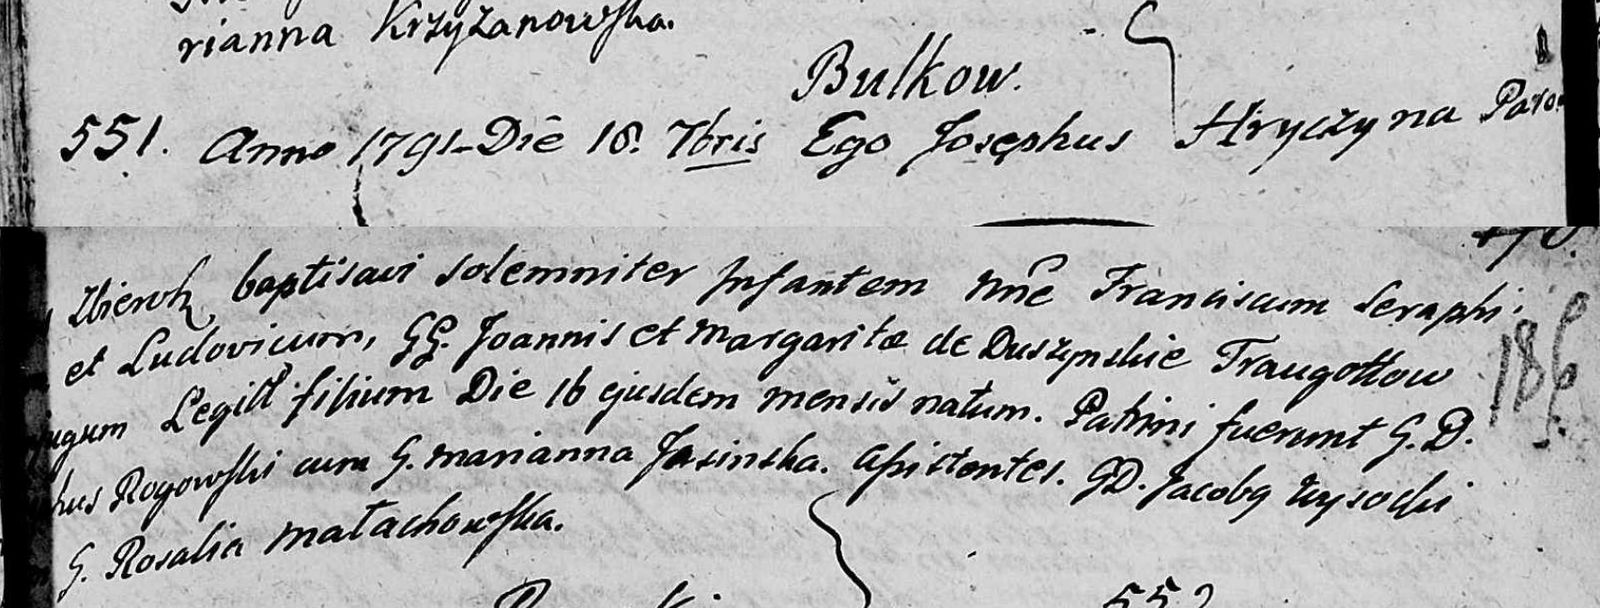 rianna Krzyżanowska.
Bulkow.
551. Anno 1791 Die 18. 7bris Ego Josephus Hryczyna Paro
baptisavi solemniter Infantem nne Franciscum Seraphi.
et Ludovicum, GG. Joannis et Margaritæ de Duszynskie Traugottow
jugum Legitt filium Die 16 ejusdem mensis natum. Patrini fuerunt G. D.
hus Rogowski cum G. Marianna Jasinska. Assistentes. GD. Jacobq Wysocki
G. Rosalia Małachowska.
186
552